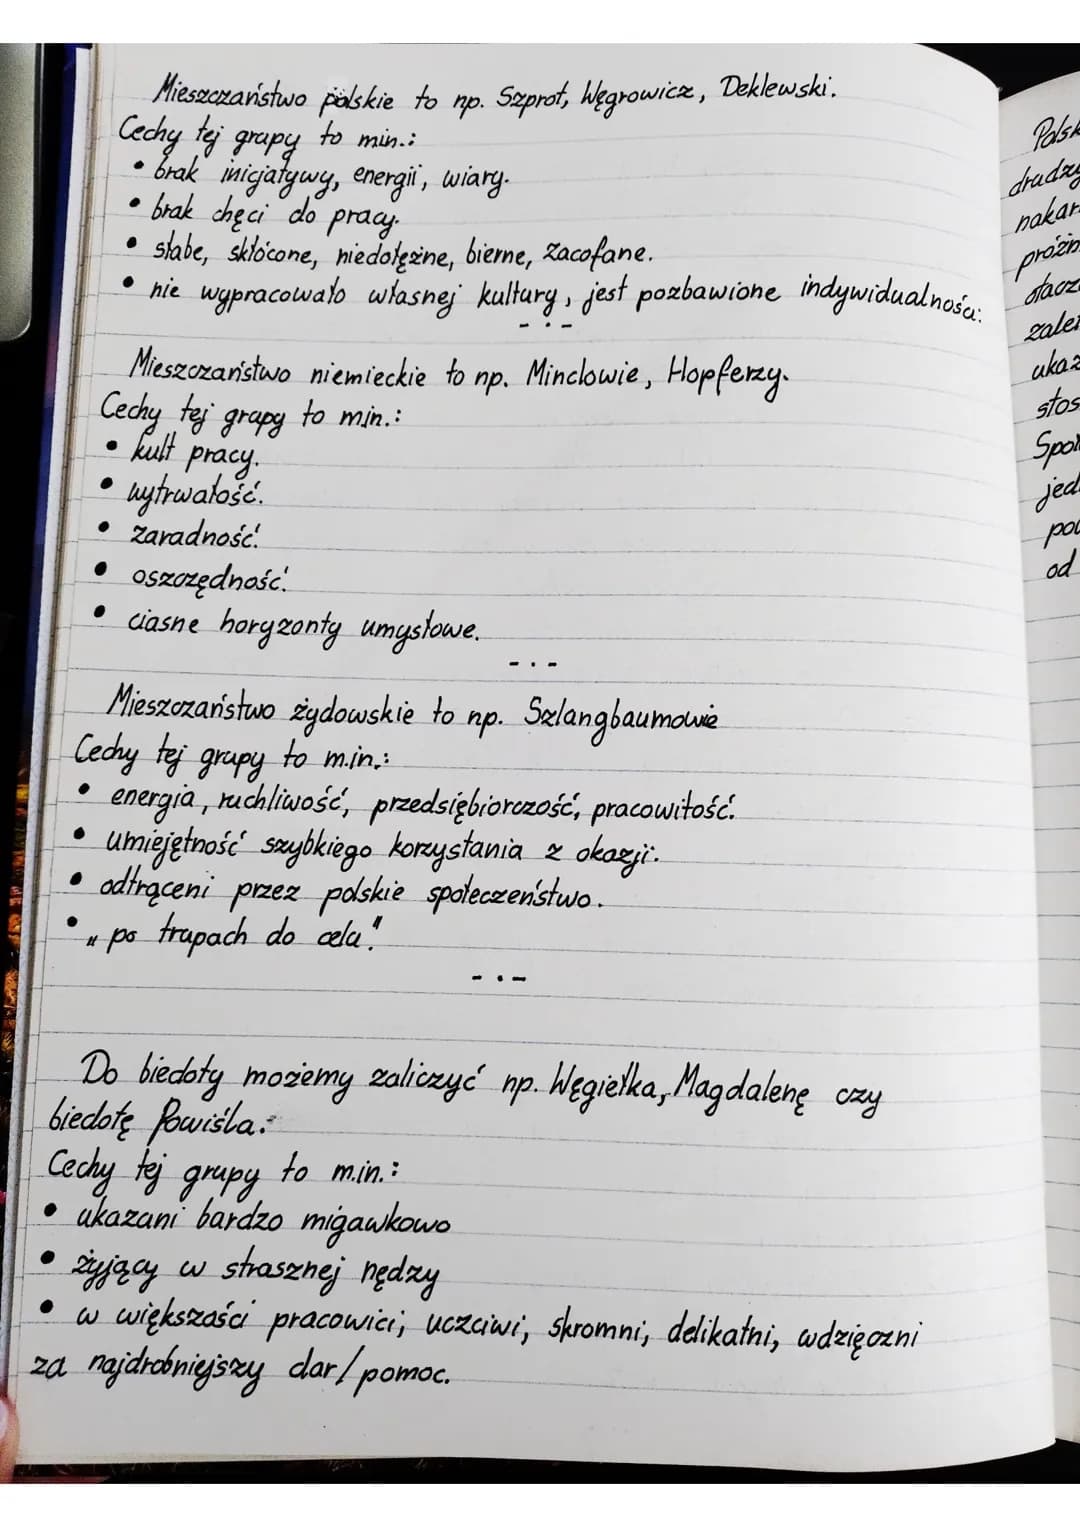 Mieszczaństwo polskie to np. Szprot, Węgrowicz, Deklewski.
Cechy tej grupy to min.:
• brak inicjatywy, energii, wiary.
• brak chęci do pracy.
• słabe, skłócone, niedołężne, bierne, zacofane.
• nie wypracowało własnej kultury, jest pozbawione indywidualności.
- . -
Mieszczaństwo niemieckie to np. Minclowie, Hopferzy.
Cechy tej grupy to min.:
• kult pracy.
• wytrwałość.
• zaradność.
• oszczędność.
• ciasne horyzonty umysłowe.
- . -
Mieszczaństwo żydowskie to np. Szlangbaumowie
Cechy tej grupy to m.in.:
• energia, ruchliwość, przedsiębiorczość, pracowitość.
• umiejętność szybkiego korzystania z okazji.
• odtrąceni przez polskie społeczeństwo.
• „po trupach do celu".
- . -
Do biedoty możemy zaliczyć np. Węgiełka, Magdalenę czy
biedotę Powiśla.
Cechy tej grupy to m.in.:
• ukazani bardzo migawkowo
• żyjący w strasznej nędzy
• w większości pracowici, uczciwi, skromni, delikatni, wdzięczni
za najdrobniejszy dar/pomoc.
od